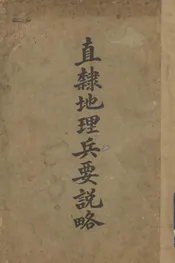 直隸地理兵要説略